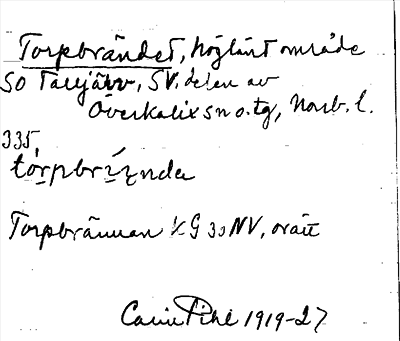 Torpbrändet, höglänt område
SO Talljärv, SV. delen av
Överkalix sn o. tg, Norrb. l.
335.
tórpbrí̱nda
Torpbrännan KG 33 NV, orätt
Carin Pihl 1919-27